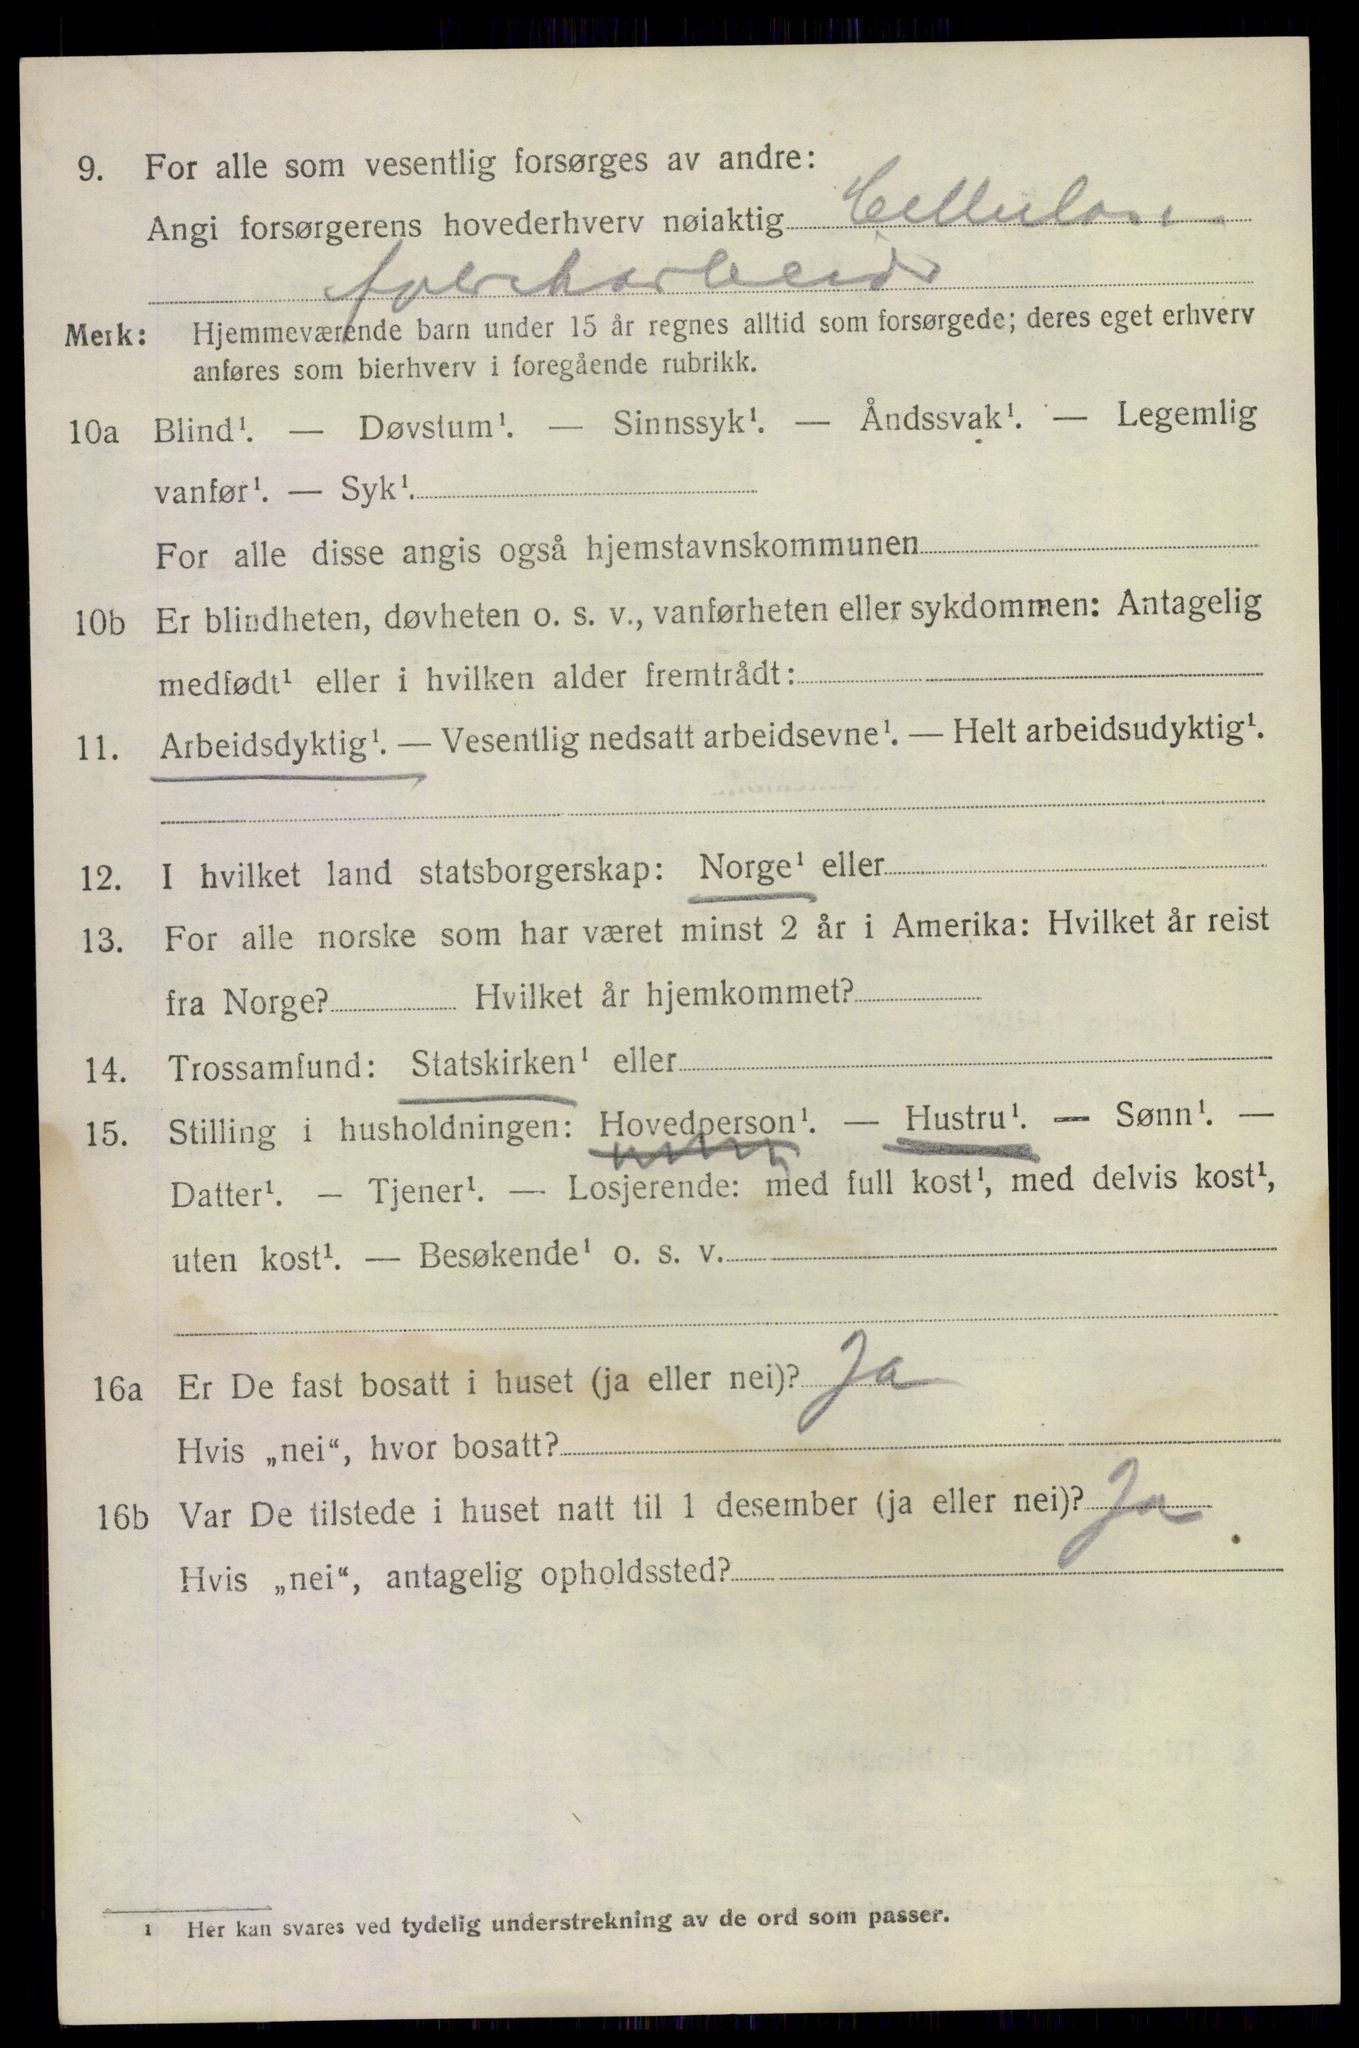 9. For alle som vesentlig forsørges av andre:
Angi forsørgerens hovederhverv nøiaktig Cellulose
fabrikarbeider
Merk: Hjemmeværende barn under 15 år regnes alltid som forsørgede; deres eget erhverv
anføres som bierhverv i foregående rubrikk.
10a Blind¹. — Døvstum¹. — Sinnssyk¹. — Åndssvak¹. — Legemlig
vanfør¹. — Syk¹.
For alle disse angis også hjemstavnskommunen
10b Er blindheten, døvheten o. s. v., vanførheten eller sykdommen: Antagelig
medfødt¹ eller i hvilken alder fremtrådt:
11. Arbeidsdyktig¹. — Vesentlig nedsatt arbeidsevne¹. — Helt arbeidsudyktig¹.
12. I hvilket land statsborgerskap: Norge¹ eller
13. For alle norske som har været minst 2 år i Amerika: Hvilket år reist
fra Norge? Hvilket år hjemkommet?
14. Trossamfund: Statskirken¹ eller
15. Stilling i husholdningen: Hovedperson¹. — Hustru¹. — Sønn¹. —
Datter¹. — Tjener¹. — Losjerende: med full kost¹, med delvis kost¹,
uten kost¹. — Besøkende¹ o. s. v.
16a Er De fast bosatt i huset (ja eller nei)? Ja
Hvis „nei“, hvor bosatt?
16b Var De tilstede i huset natt til 1 desember (ja eller nei)? Ja
Hvis „nei“, antagelig opholdssted?
1 Her kan svares ved tydelig understrekning av de ord som passer.